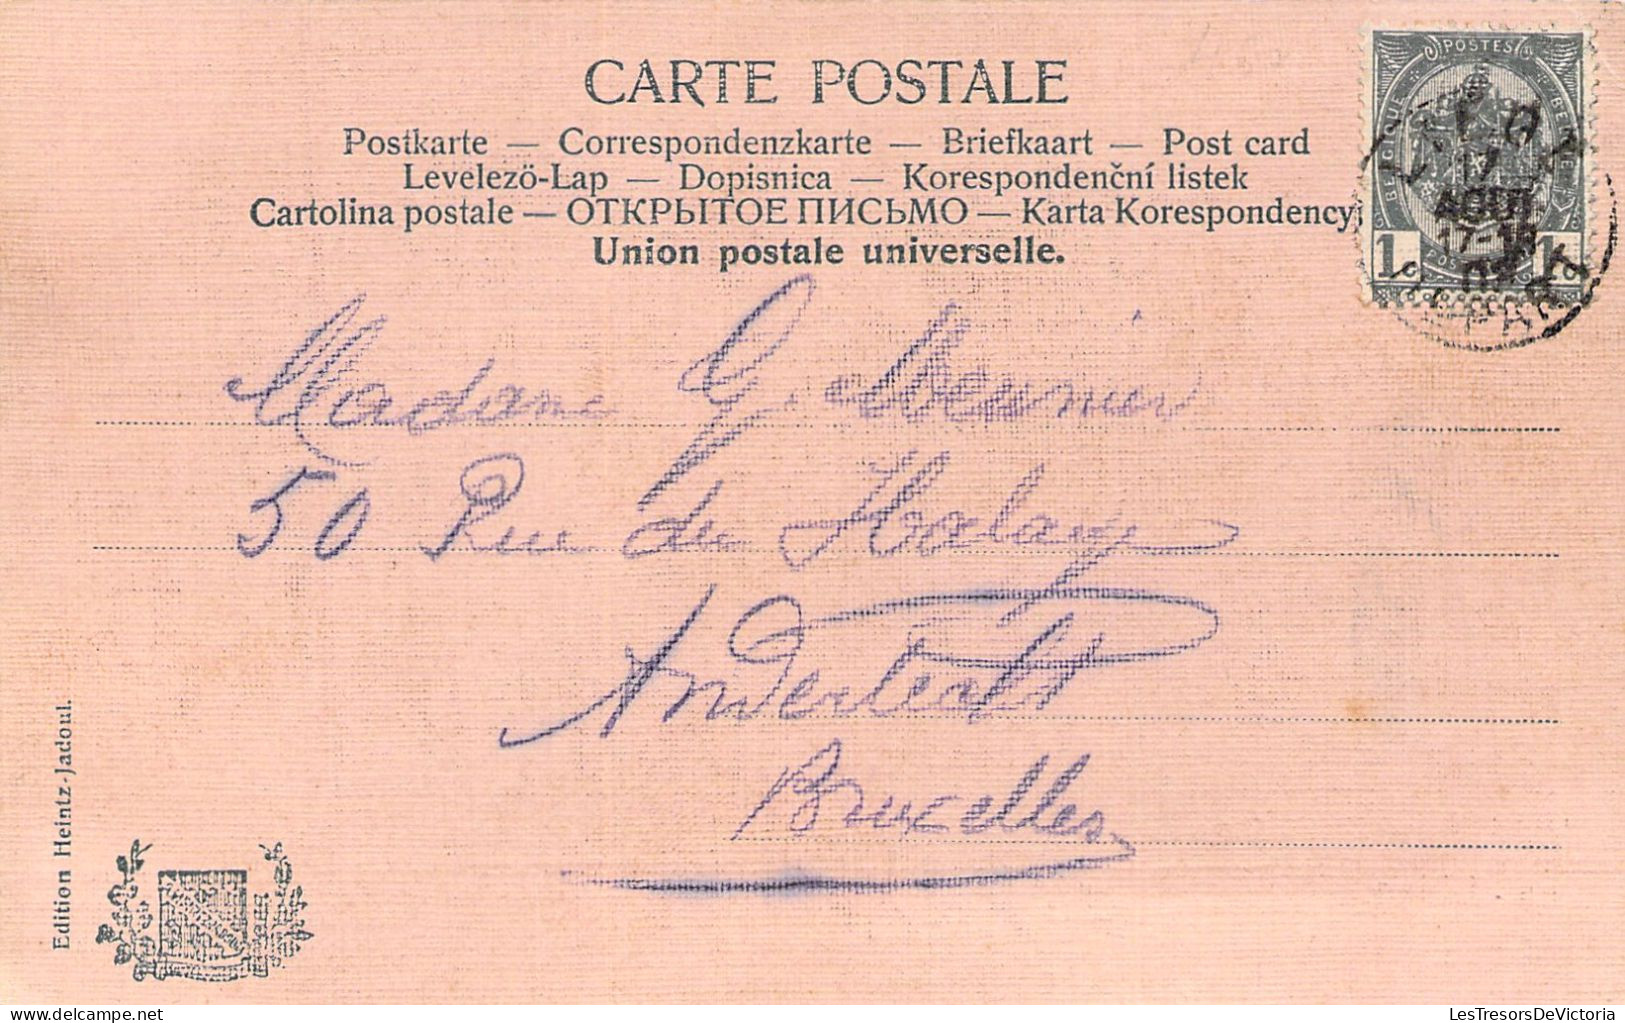 CARTE POSTALE
Postkarte — Correspondenzkarte — Briefkaart — Post card
Levelezö-Lap — Dopisnica — Korespondenční listek
Cartolina postale — ОТКРЫТОЕ ПИСЬМО — Karta Korespondency
Union postale universelle.
POSTES
BELGIQUE
BELGIË
1 1
17
AOUT
DÉPART
Madame G. Meunier
50 Rue du
Anderlecht
Bruxelles
Edition Heintz-Jadoul.
LesTresorsDeVictoria